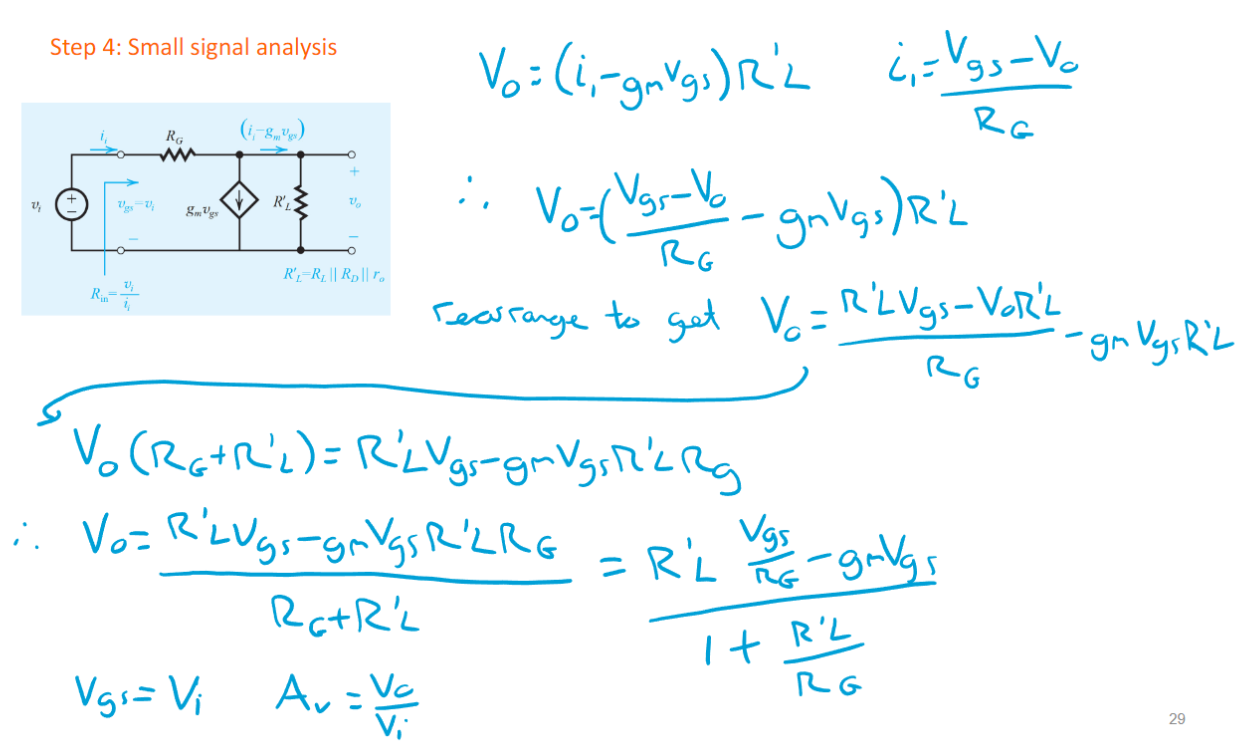 Step 4: Small signal analysis
Vo=(i,-gmVgs)R'L i,=Vgs-Vo/RG
ii RG (ii-gmvgs)
vi + - vgs=vi gmvgs R'L + vo
- -
R'L=RL || RD || ro
Rin=vi/ii
∴ Vo=(Vgs-Vo/RG - gmVgs)R'L
rearrange to get Vo=R'LVgs-VoR'L/RG -gmVgsR'L
Vo(RG+R'L)=R'LVgs-gmVgsR'LRg
∴ Vo=R'LVgs-gmVgsR'LRG/RG+R'L = R'L Vgs/RG-gmVgs/1+R'L/RG
Vgs=Vi Av=Vo/Vi
29